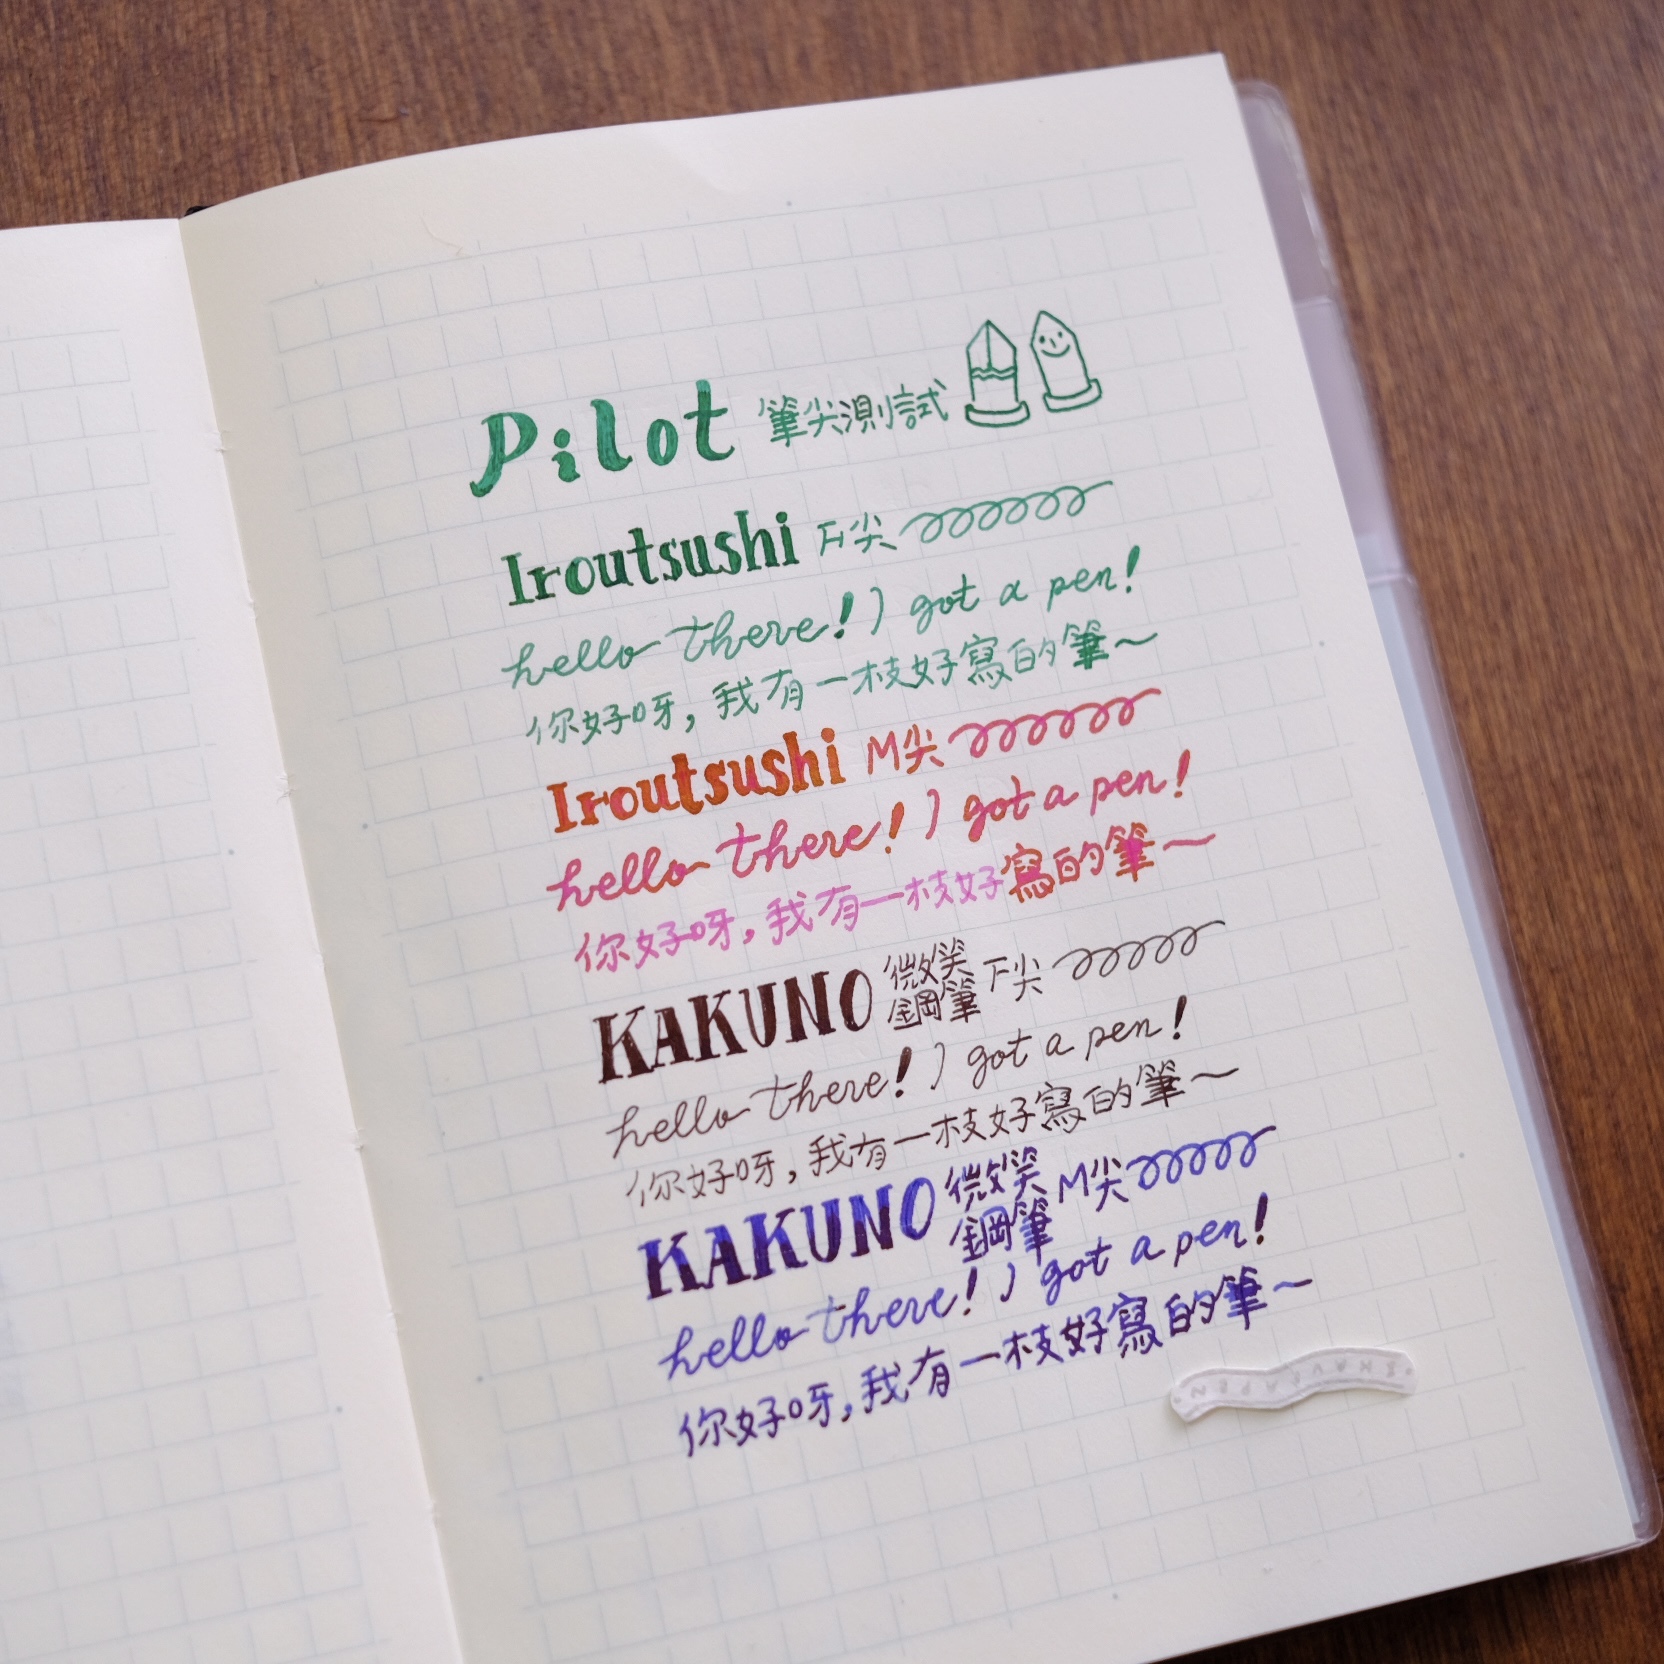 Pilot 筆尖測試
Iroutsushi F尖
hello there! I got a pen!
你好呀,我有一枝好寫的筆~
Iroutsushi M尖
hello there! I got a pen!
你好呀,我有一枝好寫的筆~
KAKUNO 微笑鋼筆 F尖
hello there! I got a pen!
你好呀,我有一枝好寫的筆~
KAKUNO 微笑鋼筆 M尖
hello there! I got a pen!
你好呀,我有一枝好寫的筆~